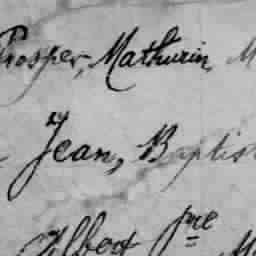 Prosper, Mathurin, M
Jean, Baptist
Albert pre M